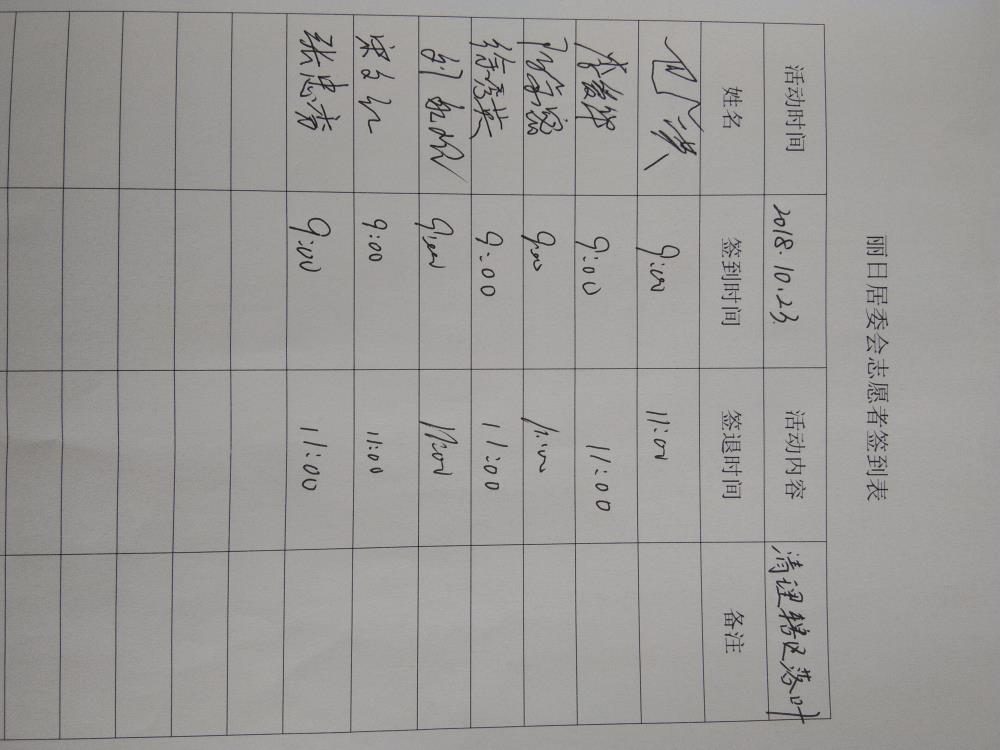 丽日居委会志愿者签到表
活动时间 2018.10.23 活动内容 清理辖区落叶
姓名 签到时间 签退时间 备注
9:00 11:00
9:00 11:00
9:00 11:00
徐秀英 9:00 11:00
9:00 11:00
9:00 11:00
张忠芳 9:00 11:00